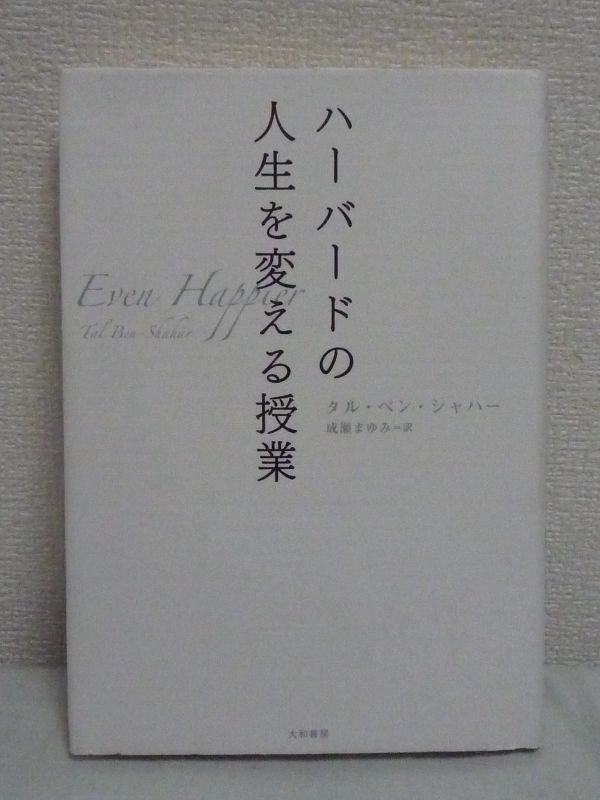 ハーバードの
人生を変える授業
Even Happier
Tal Ben-Shahar
タル・ベン・シャハー
成瀬まゆみ=訳
大和書房